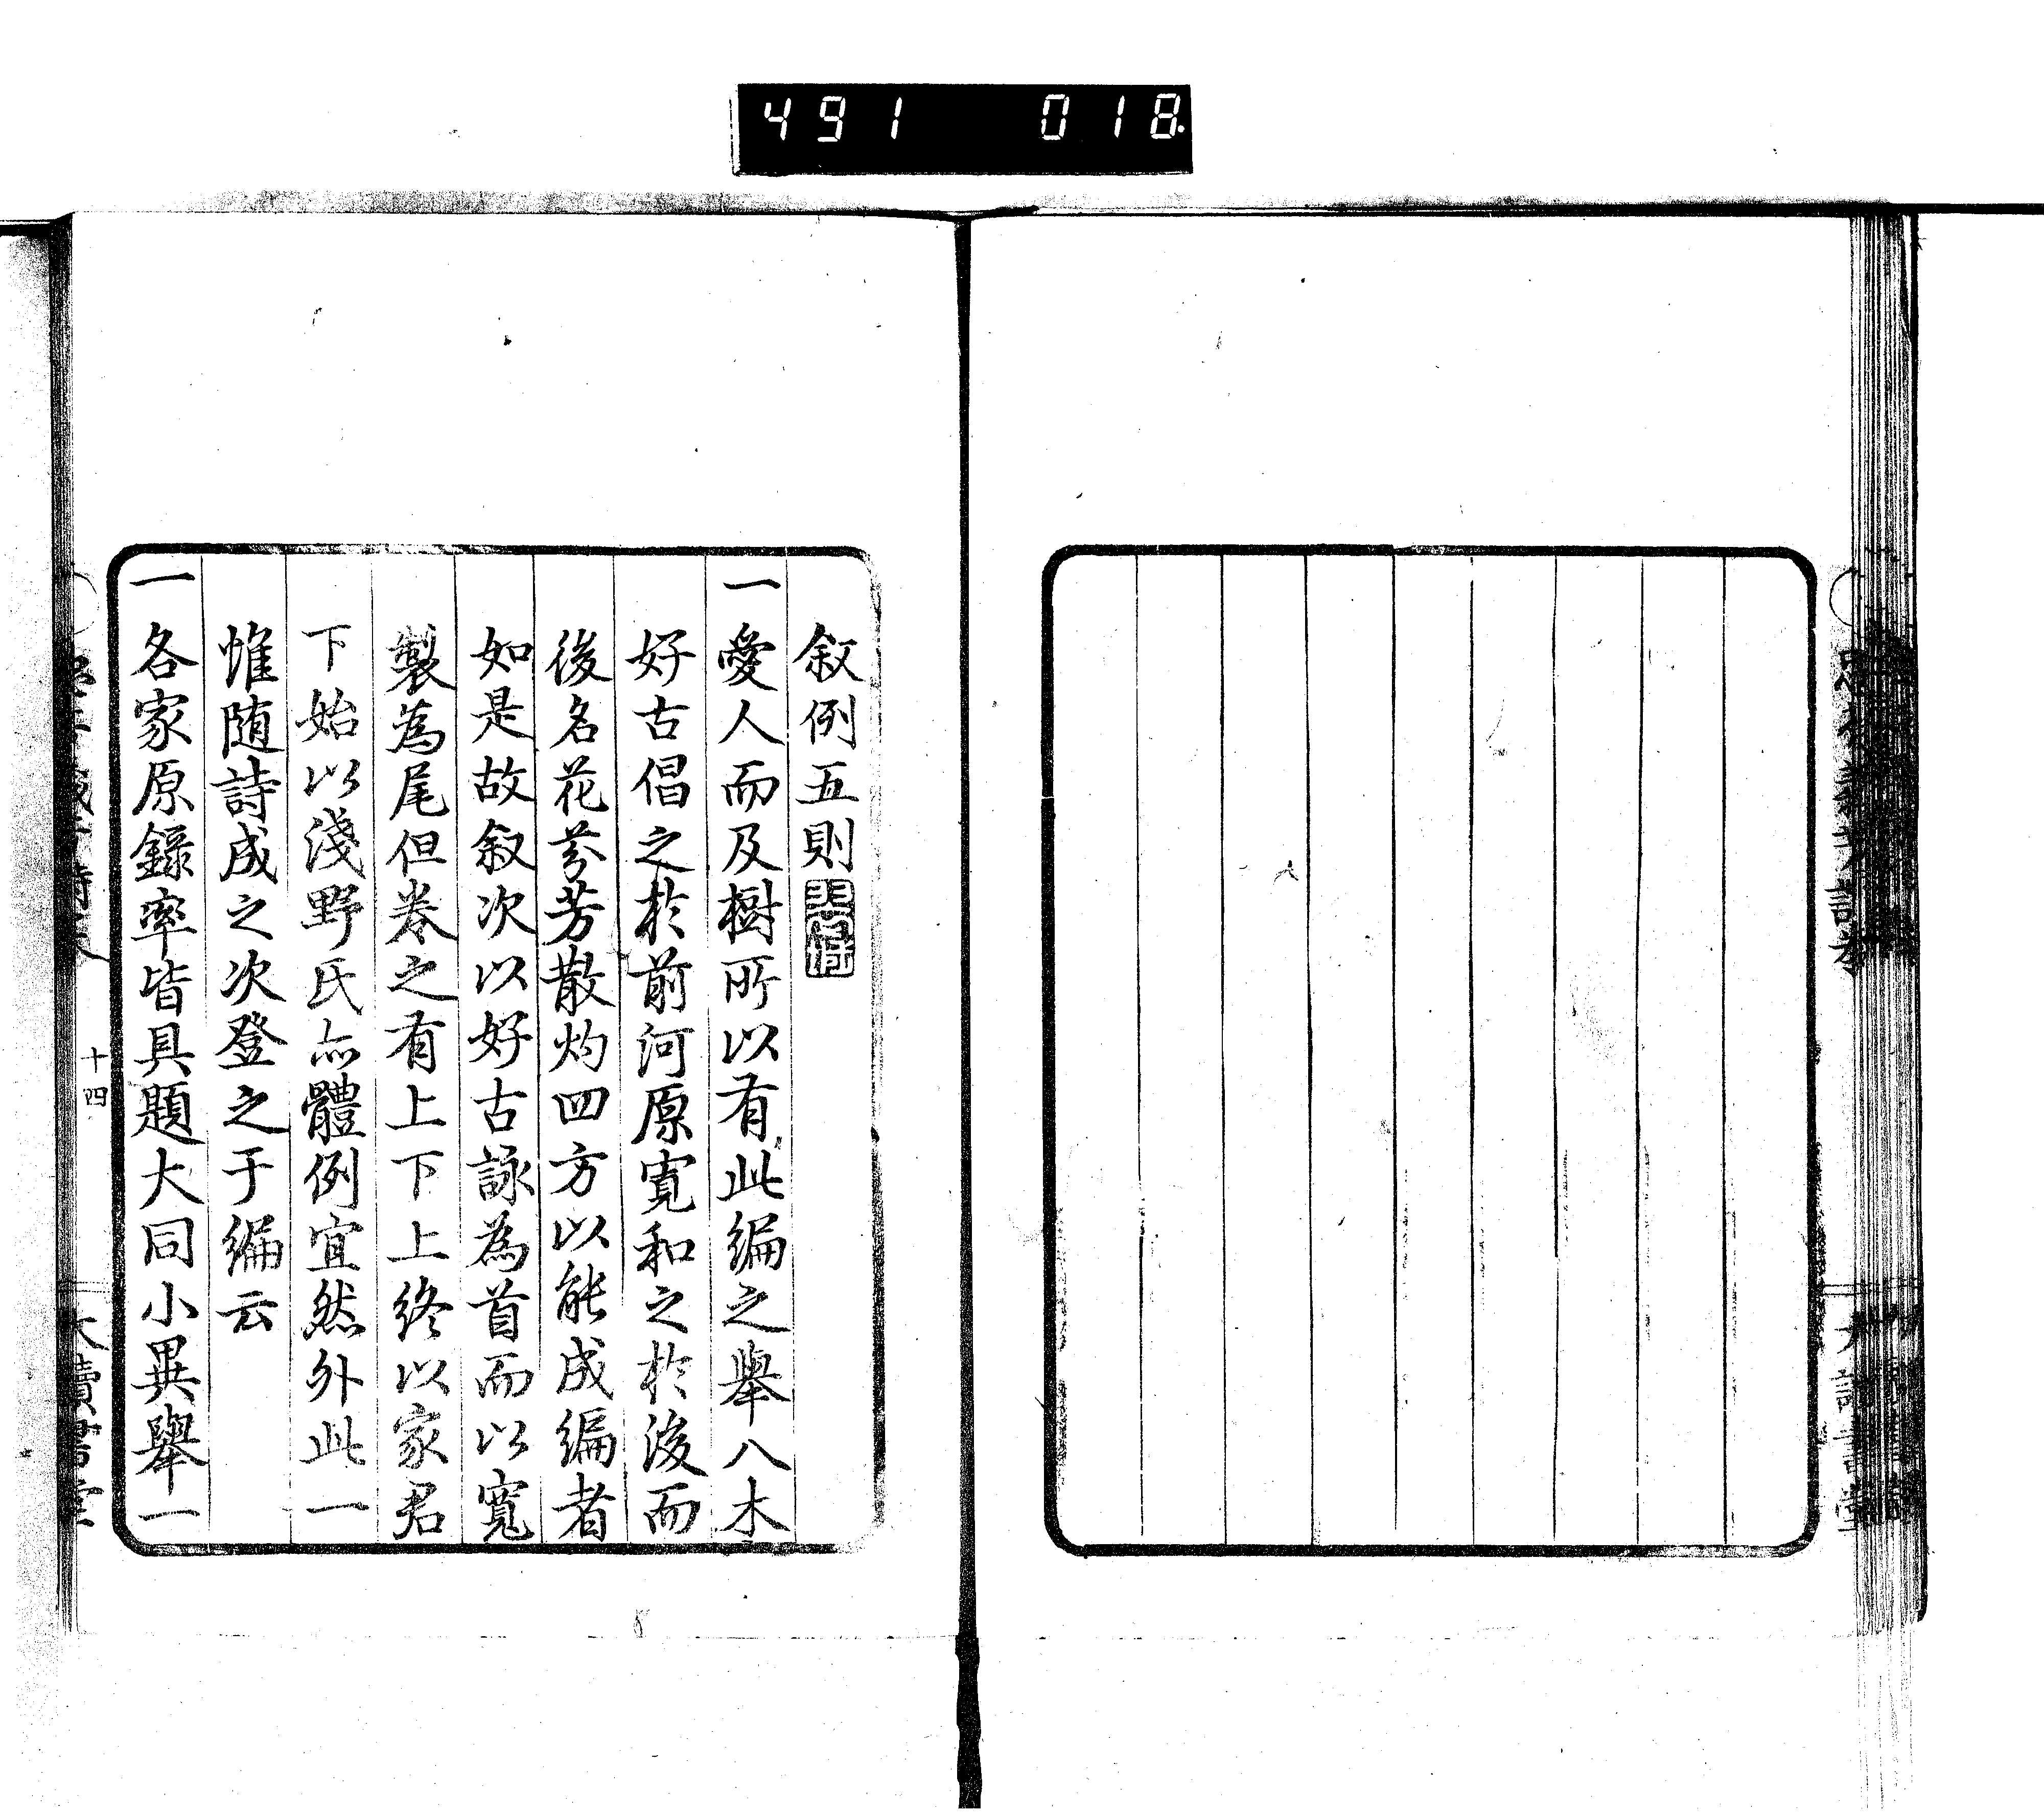 491 018
叙例五則
一愛人而及樹所以有此編之舉八木
好古倡之於前河原寬和之於後而
後名花芬芳散灼四方以能成編者
如是故叙次以好古詠為首而以寬
製為尾但卷之有上下上終以家君
下始以淺野氏亦體例宜然外此一
惟随詩成之次登之于編云
一各家原錄率皆具題大同小異舉一
十四